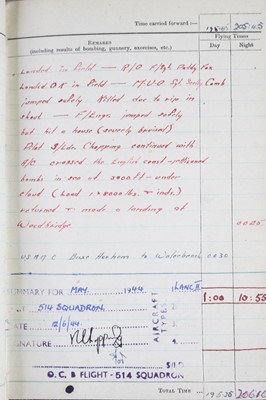 Time carried forward :—
198·45 305·45
REMARKS
(including results of bombing, gunnery, exercises, etc.)
Flying Times
Day Night
Landed in Field — R/O F/Sgt
Landed O.K in Field — M.U.G Sgt
jumped safely Killed due to rip in
chest — F/Engr jumped safely
but hit a house (severely bruised)
Pilot S/Ldr. Chopping continued with
A/C crossed the English coast - jettisoned
bombs in sea at 2000ft - under
cloud (Load 1×8000lbs + incs.)
returned & made a landing at
Woodbridge 00·05
Base to Waterbeach 00·30
SUMMARY FOR MAY 1944 1 LANC II
1:00 10:55
514 SQUADRON. 2
DATE 12/6/44 3
SIGNATURE 4
AIRCRAFT TYPES
S/LD
O. C. B FLIGHT - 514 SQUADRON
TOTAL TIME ...